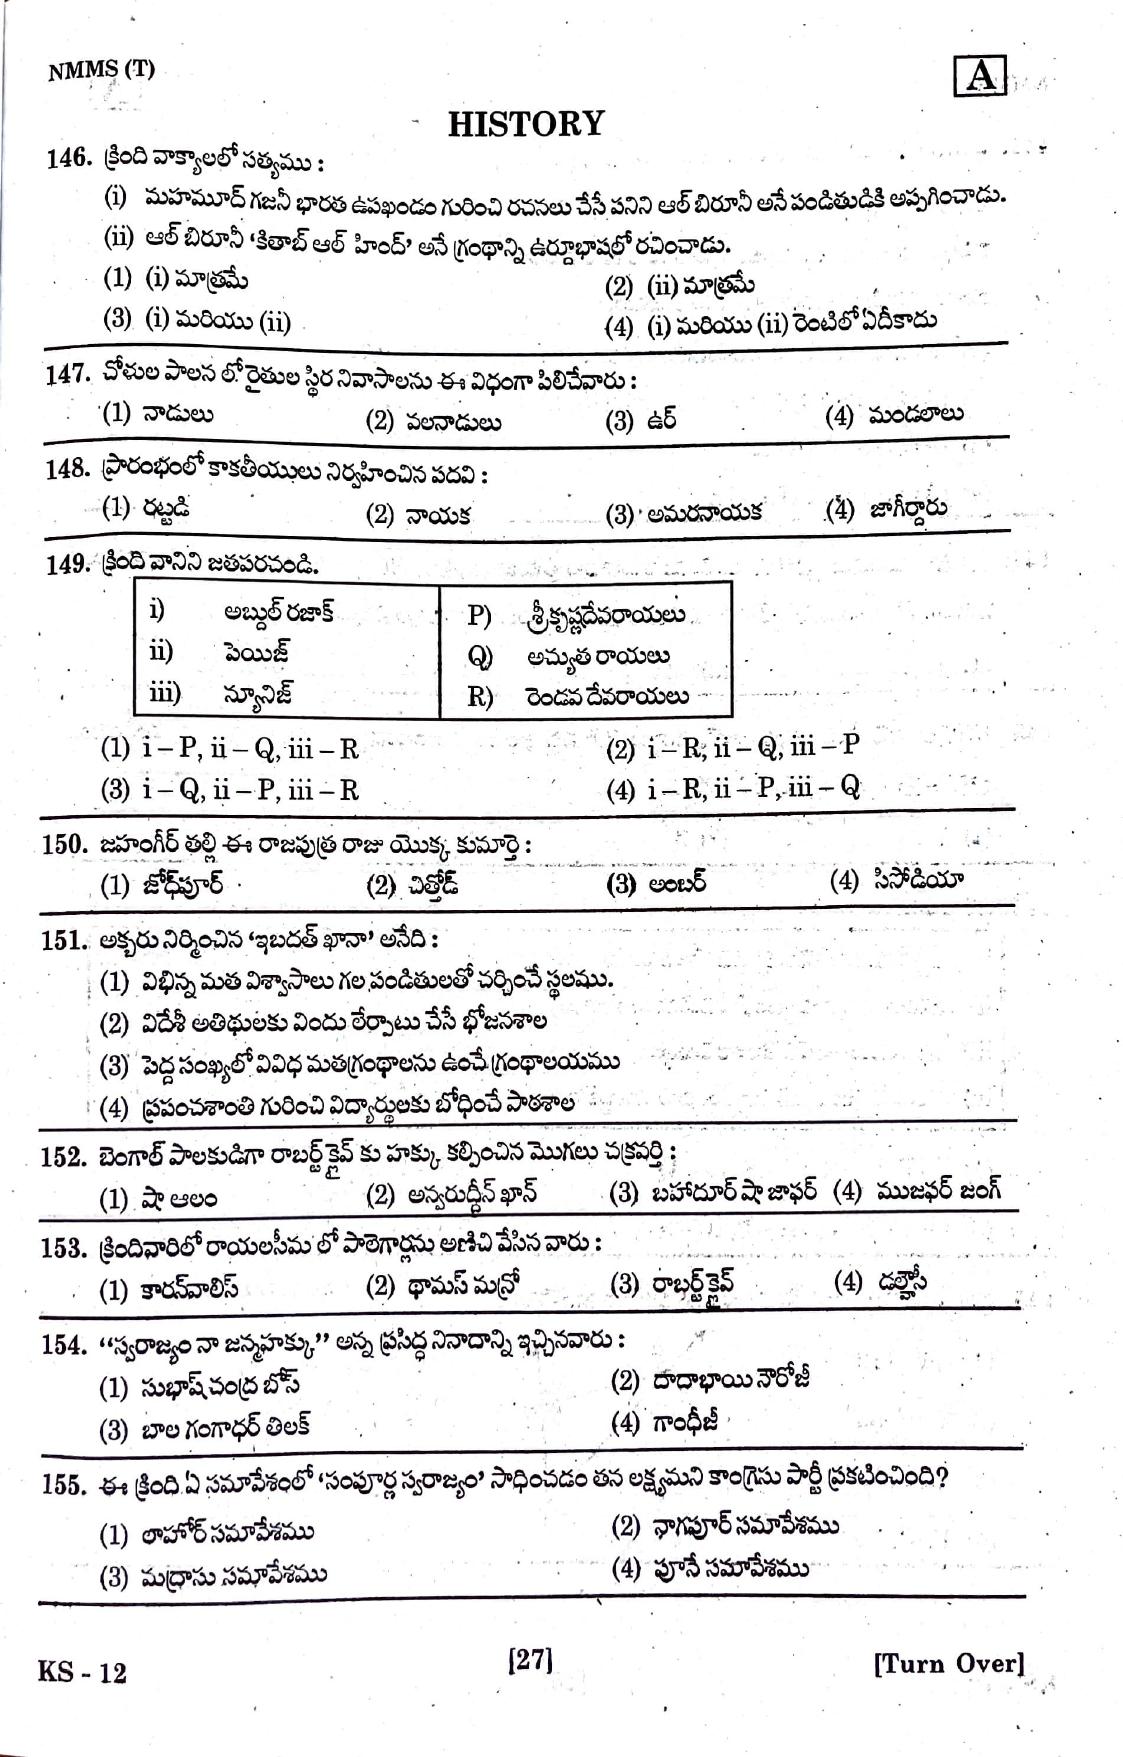 NMMS (T)
A
HISTORY
146. క్రింది వాక్యాలలో సత్యము :
(i) మహమూద్ గజనీ భారత ఉపఖండం గురించి రచనలు చేసే పనిని ఆల్ బిరూనీ అనే పండితుడికి అప్పగించాడు.
(ii) ఆల్ బిరూనీ ‘కితాబ్ ఆల్ హింద్’ అనే గ్రంథాన్ని ఉర్దూభాషలో రచించాడు.
(1) (i) మాత్రమే (2) (ii) మాత్రమే
(3) (i) మరియు (ii) (4) (i) మరియు (ii) రెంటిలో ఏదీకాదు
147. చోళుల పాలన లో రైతుల స్థిర నివాసాలను ఈ విధంగా పిలిచేవారు :
(1) నాడులు (2) వలనాడులు (3) ఉర్ (4) మండలాలు
148. ప్రారంభంలో కాకతీయులు నిర్వహించిన పదవి :
(1) రట్టడి (2) నాయక (3) అమరనాయక (4) జాగీర్దారు
149. క్రింది వానిని జతపరచండి.
i) అబ్దుల్ రజాక్ P) శ్రీకృష్ణదేవరాయలు
ii) పెయిజ్ Q) అచ్యుత రాయలు
iii) న్యూనిజ్ R) రెండవ దేవరాయలు
(1) i – P, ii – Q, iii – R (2) i – R, ii – Q, iii – P
(3) i – Q, ii – P, iii – R (4) i – R, ii – P, iii – Q
150. జహంగీర్ తల్లి ఈ రాజపుత్ర రాజు యొక్క కుమార్తె :
(1) జోధ్‌పూర్ (2) చిత్తోడ్ (3) అంబర్ (4) సిసోడియా
151. అక్బరు నిర్మించిన ‘ఇబదత్ ఖానా’ అనేది :
(1) విభిన్న మత విశ్వాసాలు గల పండితులతో చర్చించే స్థలము.
(2) విదేశీ అతిథులకు విందు లేర్పాటు చేసే భోజనశాల
(3) పెద్ద సంఖ్యలో వివిధ మతగ్రంథాలను ఉంచే గ్రంథాలయము
(4) ప్రపంచశాంతి గురించి విద్యార్థులకు బోధించే పాఠశాల
152. బెంగాల్ పాలకుడిగా రాబర్ట్‌క్లైవ్ కు హక్కు కల్పించిన మొగలు చక్రవర్తి :
(1) షా ఆలం (2) అన్వరుద్దీన్ ఖాన్ (3) బహాదూర్ షా జాఫర్ (4) ముజఫర్ జంగ్
153. క్రిందివారిలో రాయలసీమ లో పాలెగార్లను అణిచి వేసిన వారు :
(1) కారన్‌వాలిస్ (2) థామస్ మన్రో (3) రాబర్ట్‌క్లైవ్ (4) డల్హౌసీ
154. “స్వరాజ్యం నా జన్మహక్కు” అన్న ప్రసిద్ధ నినాదాన్ని ఇచ్చినవారు :
(1) సుభాష్ చంద్ర బోస్ (2) దాదాభాయి నౌరోజీ
(3) బాల గంగాధర్ తిలక్ (4) గాంధీజీ
155. ఈ క్రింది ఏ సమావేశంలో ‘సంపూర్ణ స్వరాజ్యం’ సాధించడం తన లక్ష్యమని కాంగ్రెసు పార్టీ ప్రకటించింది?
(1) లాహోర్ సమావేశము (2) నాగపూర్ సమావేశము
(3) మద్రాసు సమావేశము (4) పూనే సమావేశము
KS - 12 [27] [Turn Over]